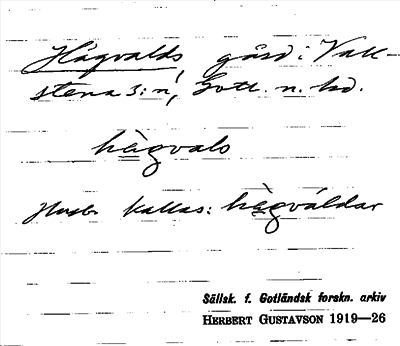 Hägvalds, gård i Vall-
stena s:n, Gotl. n. hd.
hägvals
Husb. kallas: hä̀gváldar
Sällsk. f. Gotländsk forskn. arkiv
HERBERT GUSTAVSON 1919—26